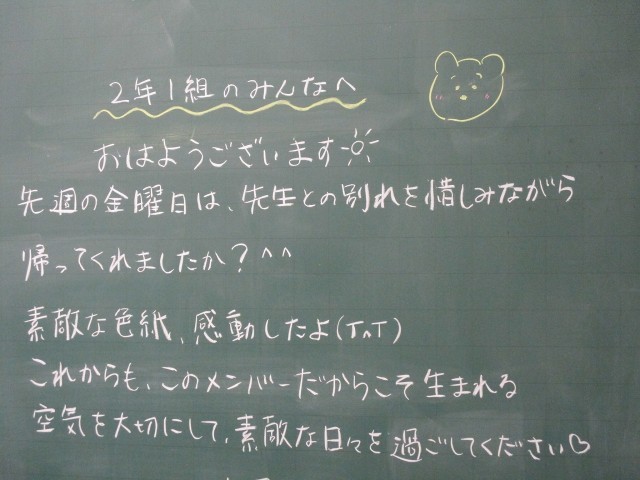 2年1組のみんなへ
おはようございます
先週の金曜日は、先生との別れを惜しみながら
帰ってくれましたか？^^
素敵な色紙、感動したよ(T^T)
これからも、このメンバーだからこそ生まれる
空気を大切にして、素敵な日々を過ごしてください♡